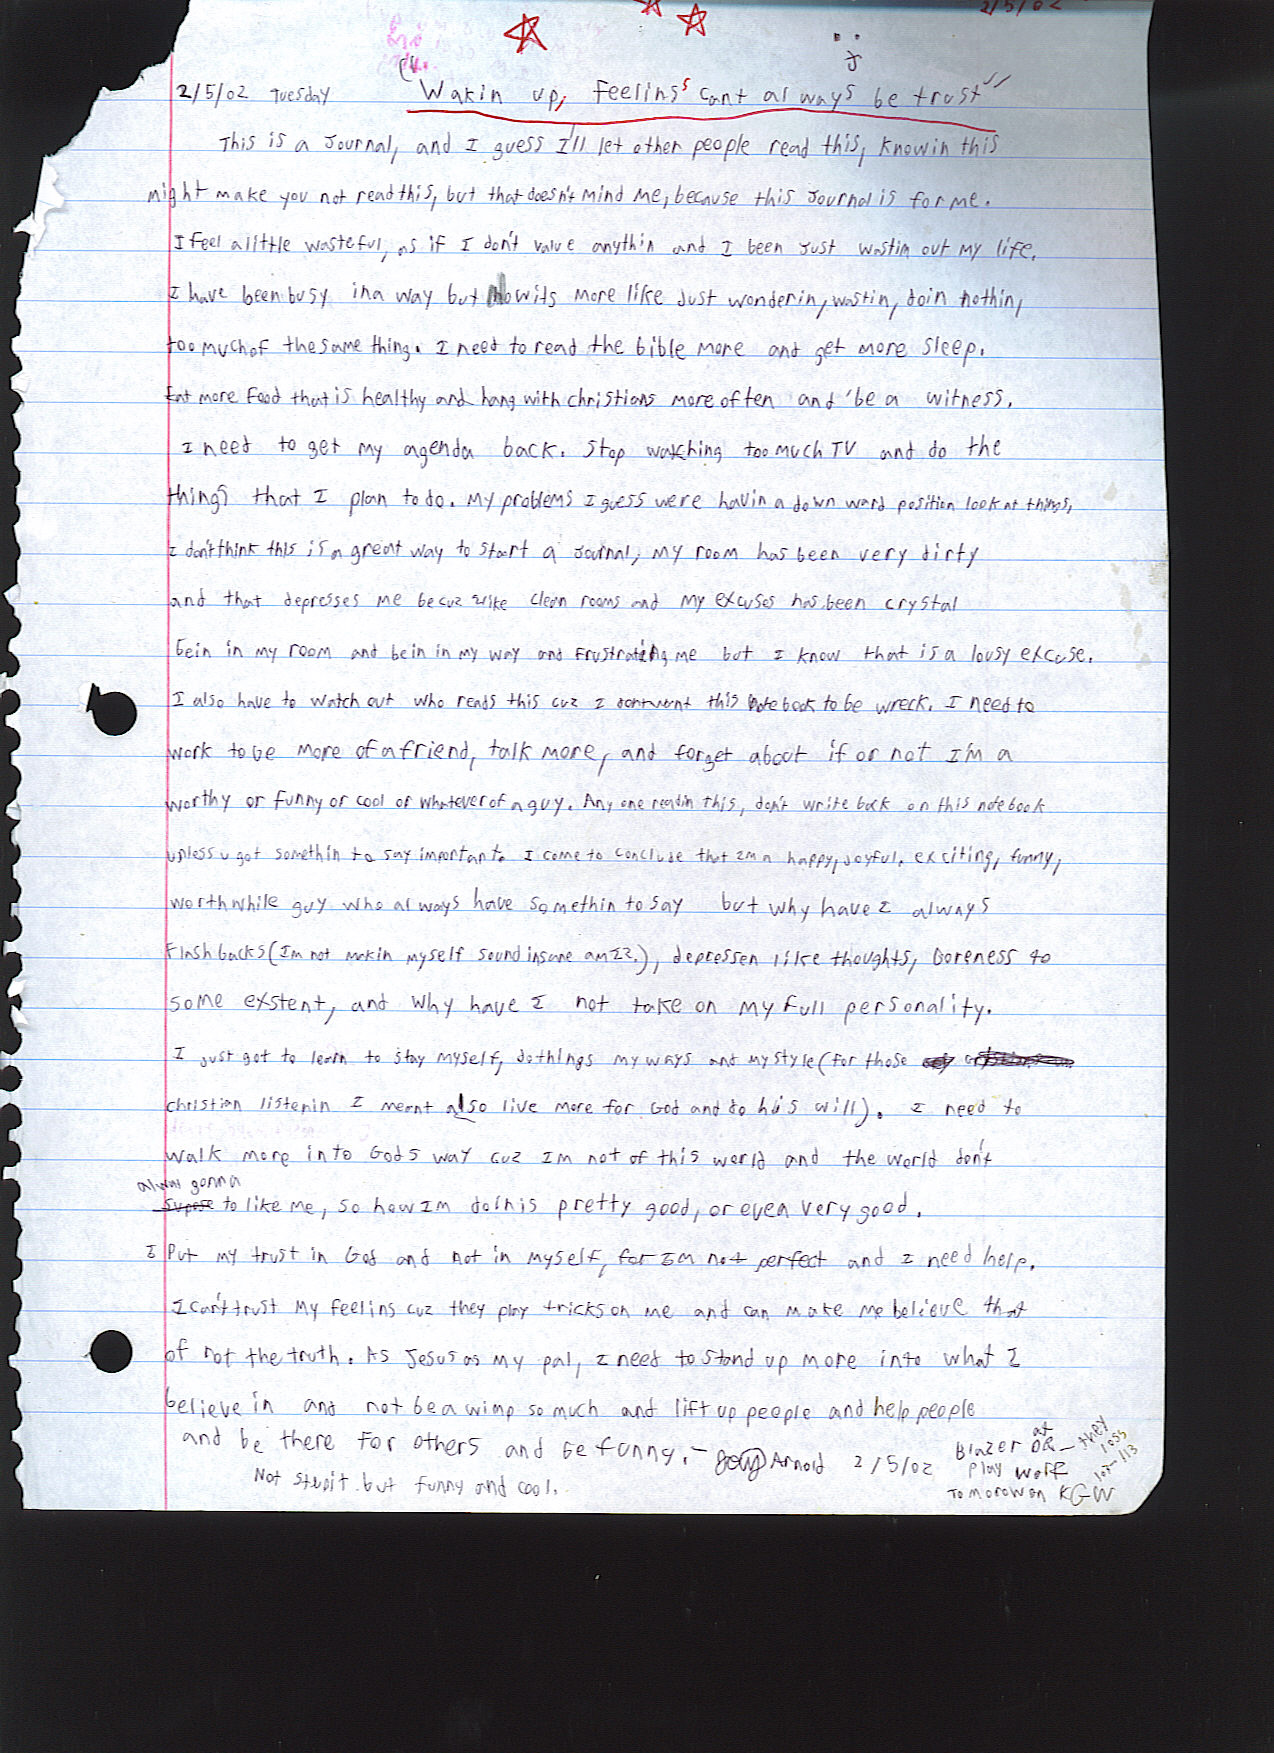 2/5/02
2/5/02 Tuesday "Wakin up, feelings cant always be trust"
This is a Journal, and I guess I'll let other people read this, knowin this
might make you not read this, but that doesn't mind me, because this Journal is for me.
I feel a little wasteful, as if I don't value anythin and I been just wastin out my life.
I have been busy in a way but Now its more like Just wonderin, wastin, doin nothin,
too much of the same thing. I need to read the bible more and get more sleep.
Eat more food that is healthy and hang with christians more often and be a witness.
I need to get my agenda back. Stop watching too much TV and do the
things that I plan to do. My problems I guess were havin a down ward position look at things,
I don't think this is a great way to start a Journal, My room has been very dirty
and that depresses me becuz I like clean rooms and my excuses has been crystal
bein in my room and bein in my way and frustrating me but I know that is a lousy excuse.
I also have to watch out who reads this cuz I dont want this notebook to be wreck. I need to
work to be more of a friend, talk more, and forget about if or not I'm a
worthy or funny or cool or whatever of a guy. Any one readin this, don't write back on this notebook
unless u got somethin to say important. I come to conclude that Im a happy, joyful, exciting, funny,
worthwhile guy who always have somethin to say but why have I always
Flashbacks (Im not makin myself sound insane am I?.), depressen like thoughts, boreness to
some exstent, and why have I not take on my full personality.
I just got to learn to stay myself, do things my ways and my style (for those
christian listenin I meant also live more for God and do his will). I need to
walk more into Gods way cuz Im not of this world and the world don't
alway gonna
supose to like me, so how Im doin is pretty good, or even very good.
I Put my trust in God and not in myself, for Im not perfect and I need help.
I can't trust my feelins cuz they play tricks on me and can make me believe that
of not the truth. As Jesus as my pal, I need to stand up more into what I
believe in and not be a wimp so much and lift up people and help people
and be there for others and be funny. - Arnold 2/5/02
Not stupit but funny and cool.
Blazer at
Play wolf
Tomorow on KGW
they
loss
107-113